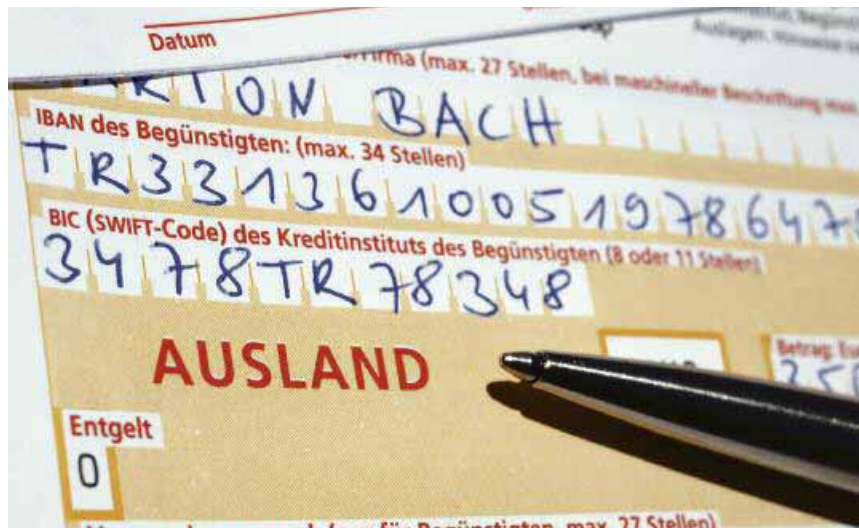 Datum
Firma (max. 27 Stellen, bei maschineller Beschriftung max.
BACH
IBAN des Begünstigten: (max. 34 Stellen)
TR331361005197864 7
BIC (SWIFT-Code) des Kreditinstituts des Begünstigten (8 oder 11 Stellen)
3478TR78348
AUSLAND
Betrag: Eu
Entgelt
0
für Begünstigten, max. 27 Stellen)